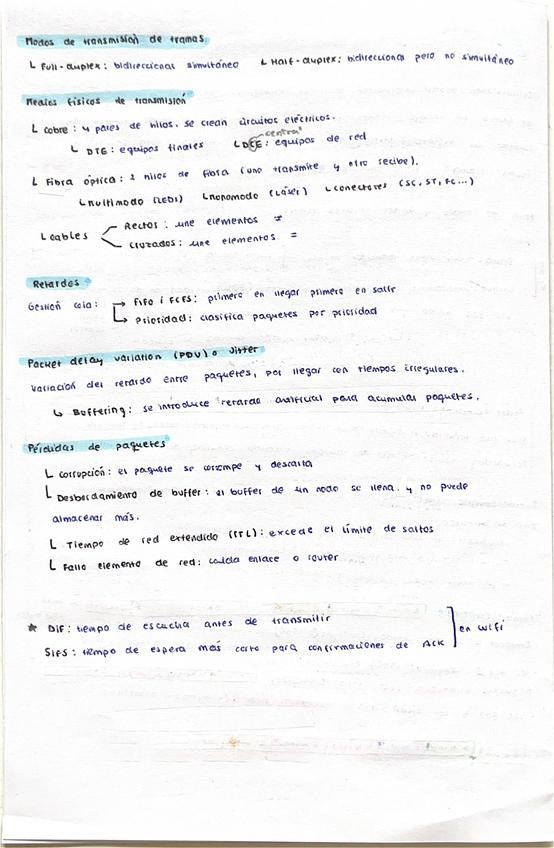 Modos de transmisión de tramas
└ Full-duplex: bidireccional simultáneo └ Half-duplex: bidireccional pero no simultáneo
Medios físicos de transmisión
└ Cobre: 4 pares de hilos. se crean circuitos eléctricos.
central
└ DTE: equipos finales └ DCE: equipos de red
└ Fibra óptica: 2 hilos de fibra (uno transmite y otro recibe).
└ Multimodo (LEDs) └ Monomodo (Láser) └ conectores (SC, ST, FC...)
└ Cables
Rectos: une elementos ≠
Cruzados: une elementos =
Retardos
Gestión cola: → FIFO i FCFS: primero en llegar primero en salir
↳ Prioridad: clasifica paquetes por prioridad
Packet delay variation (PDV) o Jitter
Variación del retardo entre paquetes, por llegar con tiempos irregulares.
↳ Buffering: se introduce retardo artificial para acumular paquetes.
Pérdidas de paquetes
└ Corrupción: el paquete se corrompe y descarta
└ Desbordamiento de buffer: el buffer de un nodo se llena y no puede
almacenar más.
└ Tiempo de red extendido (TTL): excede el límite de saltos
└ Fallo elemento de red: caída enlace o router
* DIF: tiempo de escucha antes de transmitir
SIFS: tiempo de espera más corto para confirmaciones de ACK
en wifi